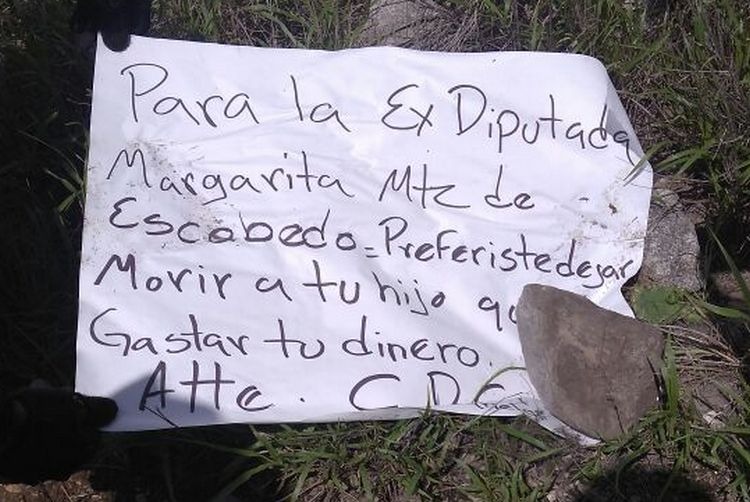 Para la Ex Diputada
Margarita Mtz de -
Escobedo = Preferiste dejar
Morir a tu hijo
Gastar tu dinero.
Atte. C D G